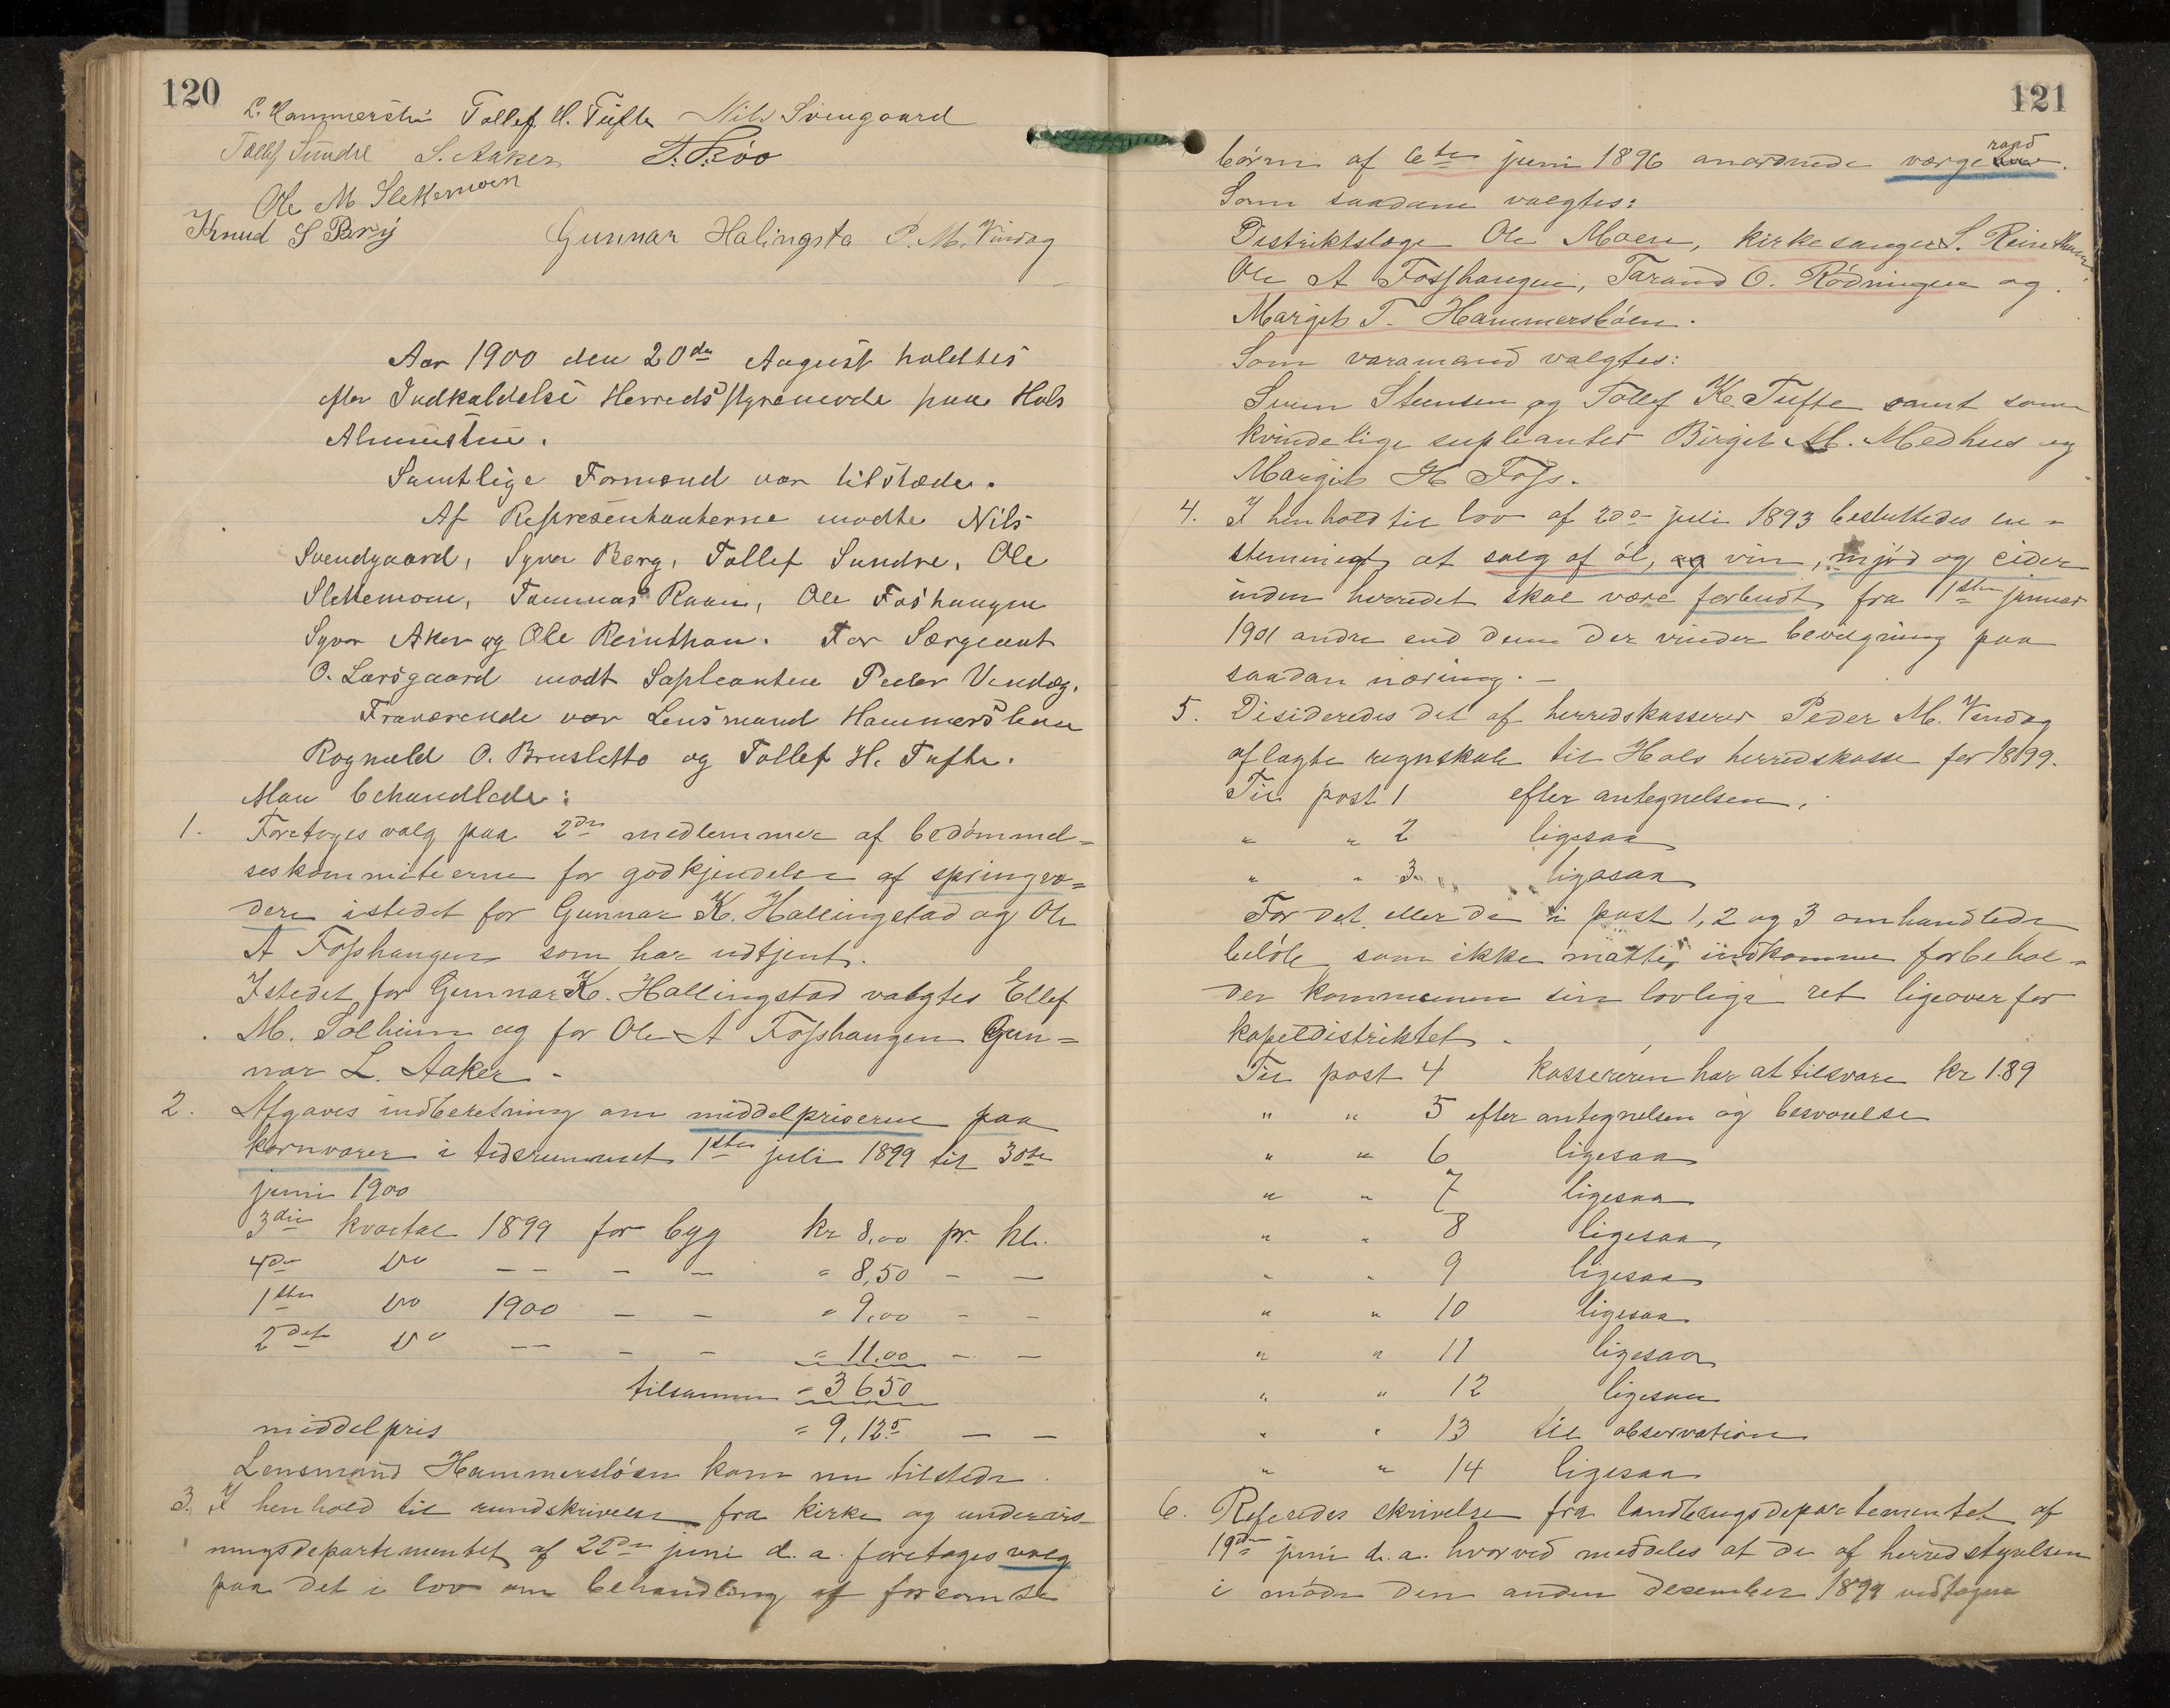 120
L. Hammersbøn Tollef H. Tufte Nils Svengaard
Tollef Sundre S. Aaker T. Roo
Ole M Slettemoen
Knud S Bry Gunnar Halingsta P. M. Vindæg
Aar 1900 den 20de August holdtes
efter Indkaldelse Herredsstyremøde paa Hols
Almenstue.
Samtlige Formænd var tilstæde.
Af Representanterne mødte Nils
Svendgaard, Syver Berg, Tollef Sundre, Ole
Slettemoen, Tommas Raaen, Ole Foshaugen
Syver Aker og Ole Reinthon. For Særgeant
O. Larsgaard mødt Supleanten Peder Vindæg.
Fraværende var Lensmand Hammersbøen
Rognald O. Brusletto og Tollef H. Tufte.
Man behandlede:
1. Foretoges valg paa 2de medlemmer af bedømmel=
seskommiteerne for godkjendelse af springva=
dere istedet for Gunnar K. Hallingstad og Ole
A Fosshaugen som har udtjent.
Istedet for Gunnar K. Hallingstad valgtes Ellef
M. Solheim og for Ole A Fosshaugen Gun=
nar L. Aaker.-
2. Afgaves indberetning om middelpriserne paa
kornvarer i tidsrummet 1ste juli 1899 til 30te
juni 1900
3die kvartal 1899 for byg kr 8,00 pr. hl.
4de do -- - - " 8,50 - -
1ste do 1900 - - " 9,00 - -
2det do -- - - " 11.00 - -
tilsammen " 3650
middelpris " 9,125 - -
Lensmand Hammersbøen kom nu tilstede.
3. I henhold til rundskrivelse fra kirke og undervis-
ningsdepartementet af 22de juni d. a. foretoges valg
paa det i lov om behandling af forsømte
121
børn af 6te juni 1896 anordnede værgeraad.
Som saadane valgtes:
Distriktslæge Ole Moen, kirkesanger S. Reinthon,
Ole A Fosshaugen, Tarand O. Rødningen og
Margit T. Hammersbøen.
Som varamænd valgtes:
Svein Steensen og Tollef K. Tufte samt som
kvindelige supleanter Birgit M. Medhus og
Margit H Foss.
4. I henhold til lov af 20de juli 1893 besluttedes en=
stemmigt at salg af øl, og vin, mjød og cider
inden herredet skal være forbudt fra 1ste januar
1901 andre end dem der vinder bevilgning paa
saadan næring.-
5. Disideredes det af herredskasserer Peder M. Vindæg
aflagte regnskab til Hols herredskasse for 1899.
Til post 1 efter antegnelsen.
" " 2 ligesaa
" " 3 ligesaa
For det eller de i post 1, 2 og 3 omhandlede
beløb som ikke måtte indkomme forbehol=
der kommunen sin lovlige ret ligeoverfor
kapeldistriktet.
Til post 4 kassereren har at tilsvare kr 1.89
" " 5 efter antegnelsen og besvarelse
" " 6 ligesaa
" " 7 ligesaa
" " 8 ligesaa
" " 9 ligesaa
" " 10 ligesaa
" " 11 ligesaa
" " 12 ligesaa
" " 13 til observation
" " 14 ligesaa
6. Referedes skrivelse fra landbrugsdepartementet af
19de juni d. a. hvorved meddeles at de af herredstyrelsen
i møde den anden desember 1899 vedtagne